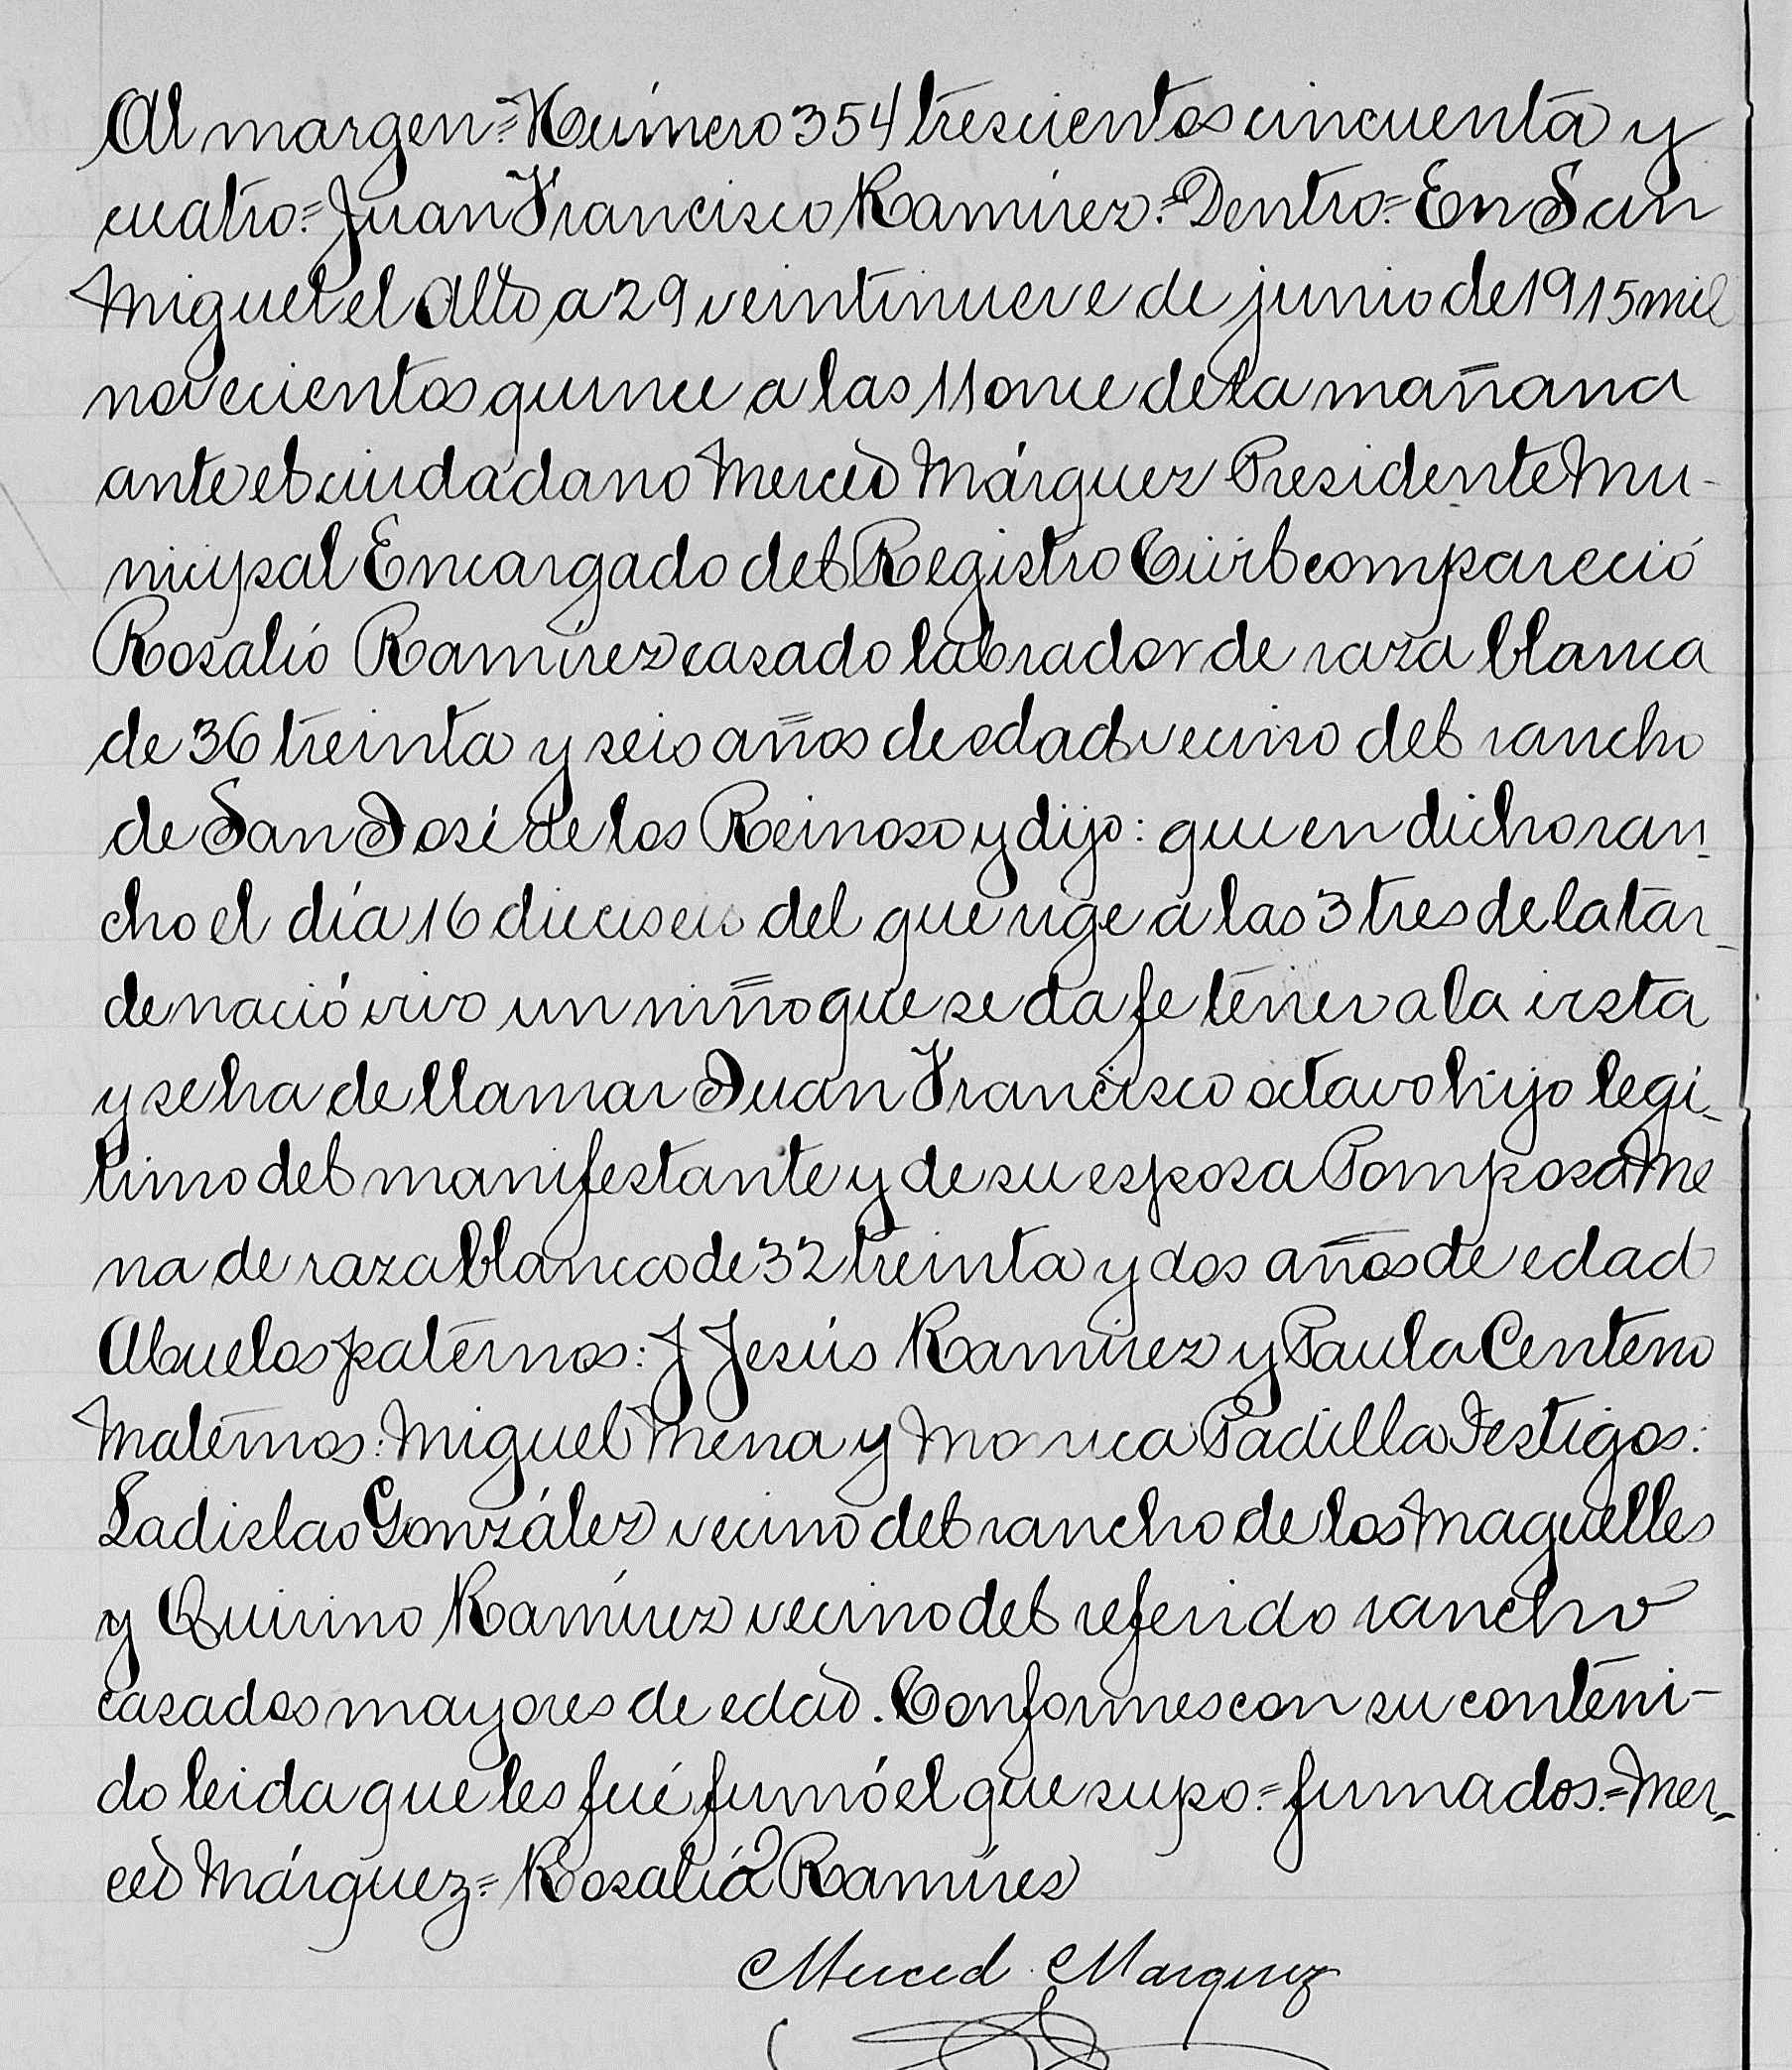 Al margen.=Número 354 trescientos cincuenta y
cuatro.=Juan Francisco Ramírez.=Dentro.=En San
Miguel el Alto a 29 veintinueve de junio de 1915 mil
novecientos quince a las 11 once de la mañana
ante el ciudadano Merced Márquez Presidente Mu-
nicipal Encargado del Registro Civil compareció
Rosalío Ramírez casado labrador de raza blanca
de 36 treinta y seis años de edad vecino del rancho
de San José de los Reinoso y dijo: que en dicho ran-
cho el día 16 dieciseis del que rige a las 3 tres de la tar-
de nació vivo un niño que se da fe tener a la vista
y se ha de llamar Juan Francisco octavo hijo legí-
timo del manifestante y de su esposa Pomposa Me
na de raza blanca de 32 treinta y dos años de edad
Abuelos paternos: J Jesús Ramírez y Paula Centeno
Maternos: Miguel Mena y Monica Padilla Testigos:
Ladislao González vecino del rancho de los Maguelles
y Quirino Ramírez vecino del referido rancho
casados mayores de edad. Conformes con su conteni-
do leida que les fué firmó el que supo.=firmados.=Mer-
ced Márquez.=Rosalío Ramíres
Merced Marquez